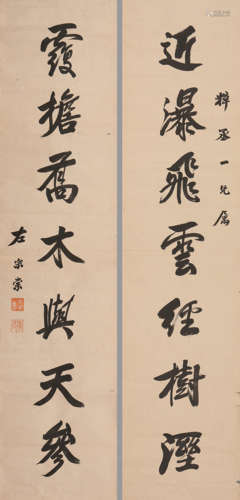 近瀑飛雲經樹溼
梓丞一兄屬
霞擔喬木與天參
左宗棠